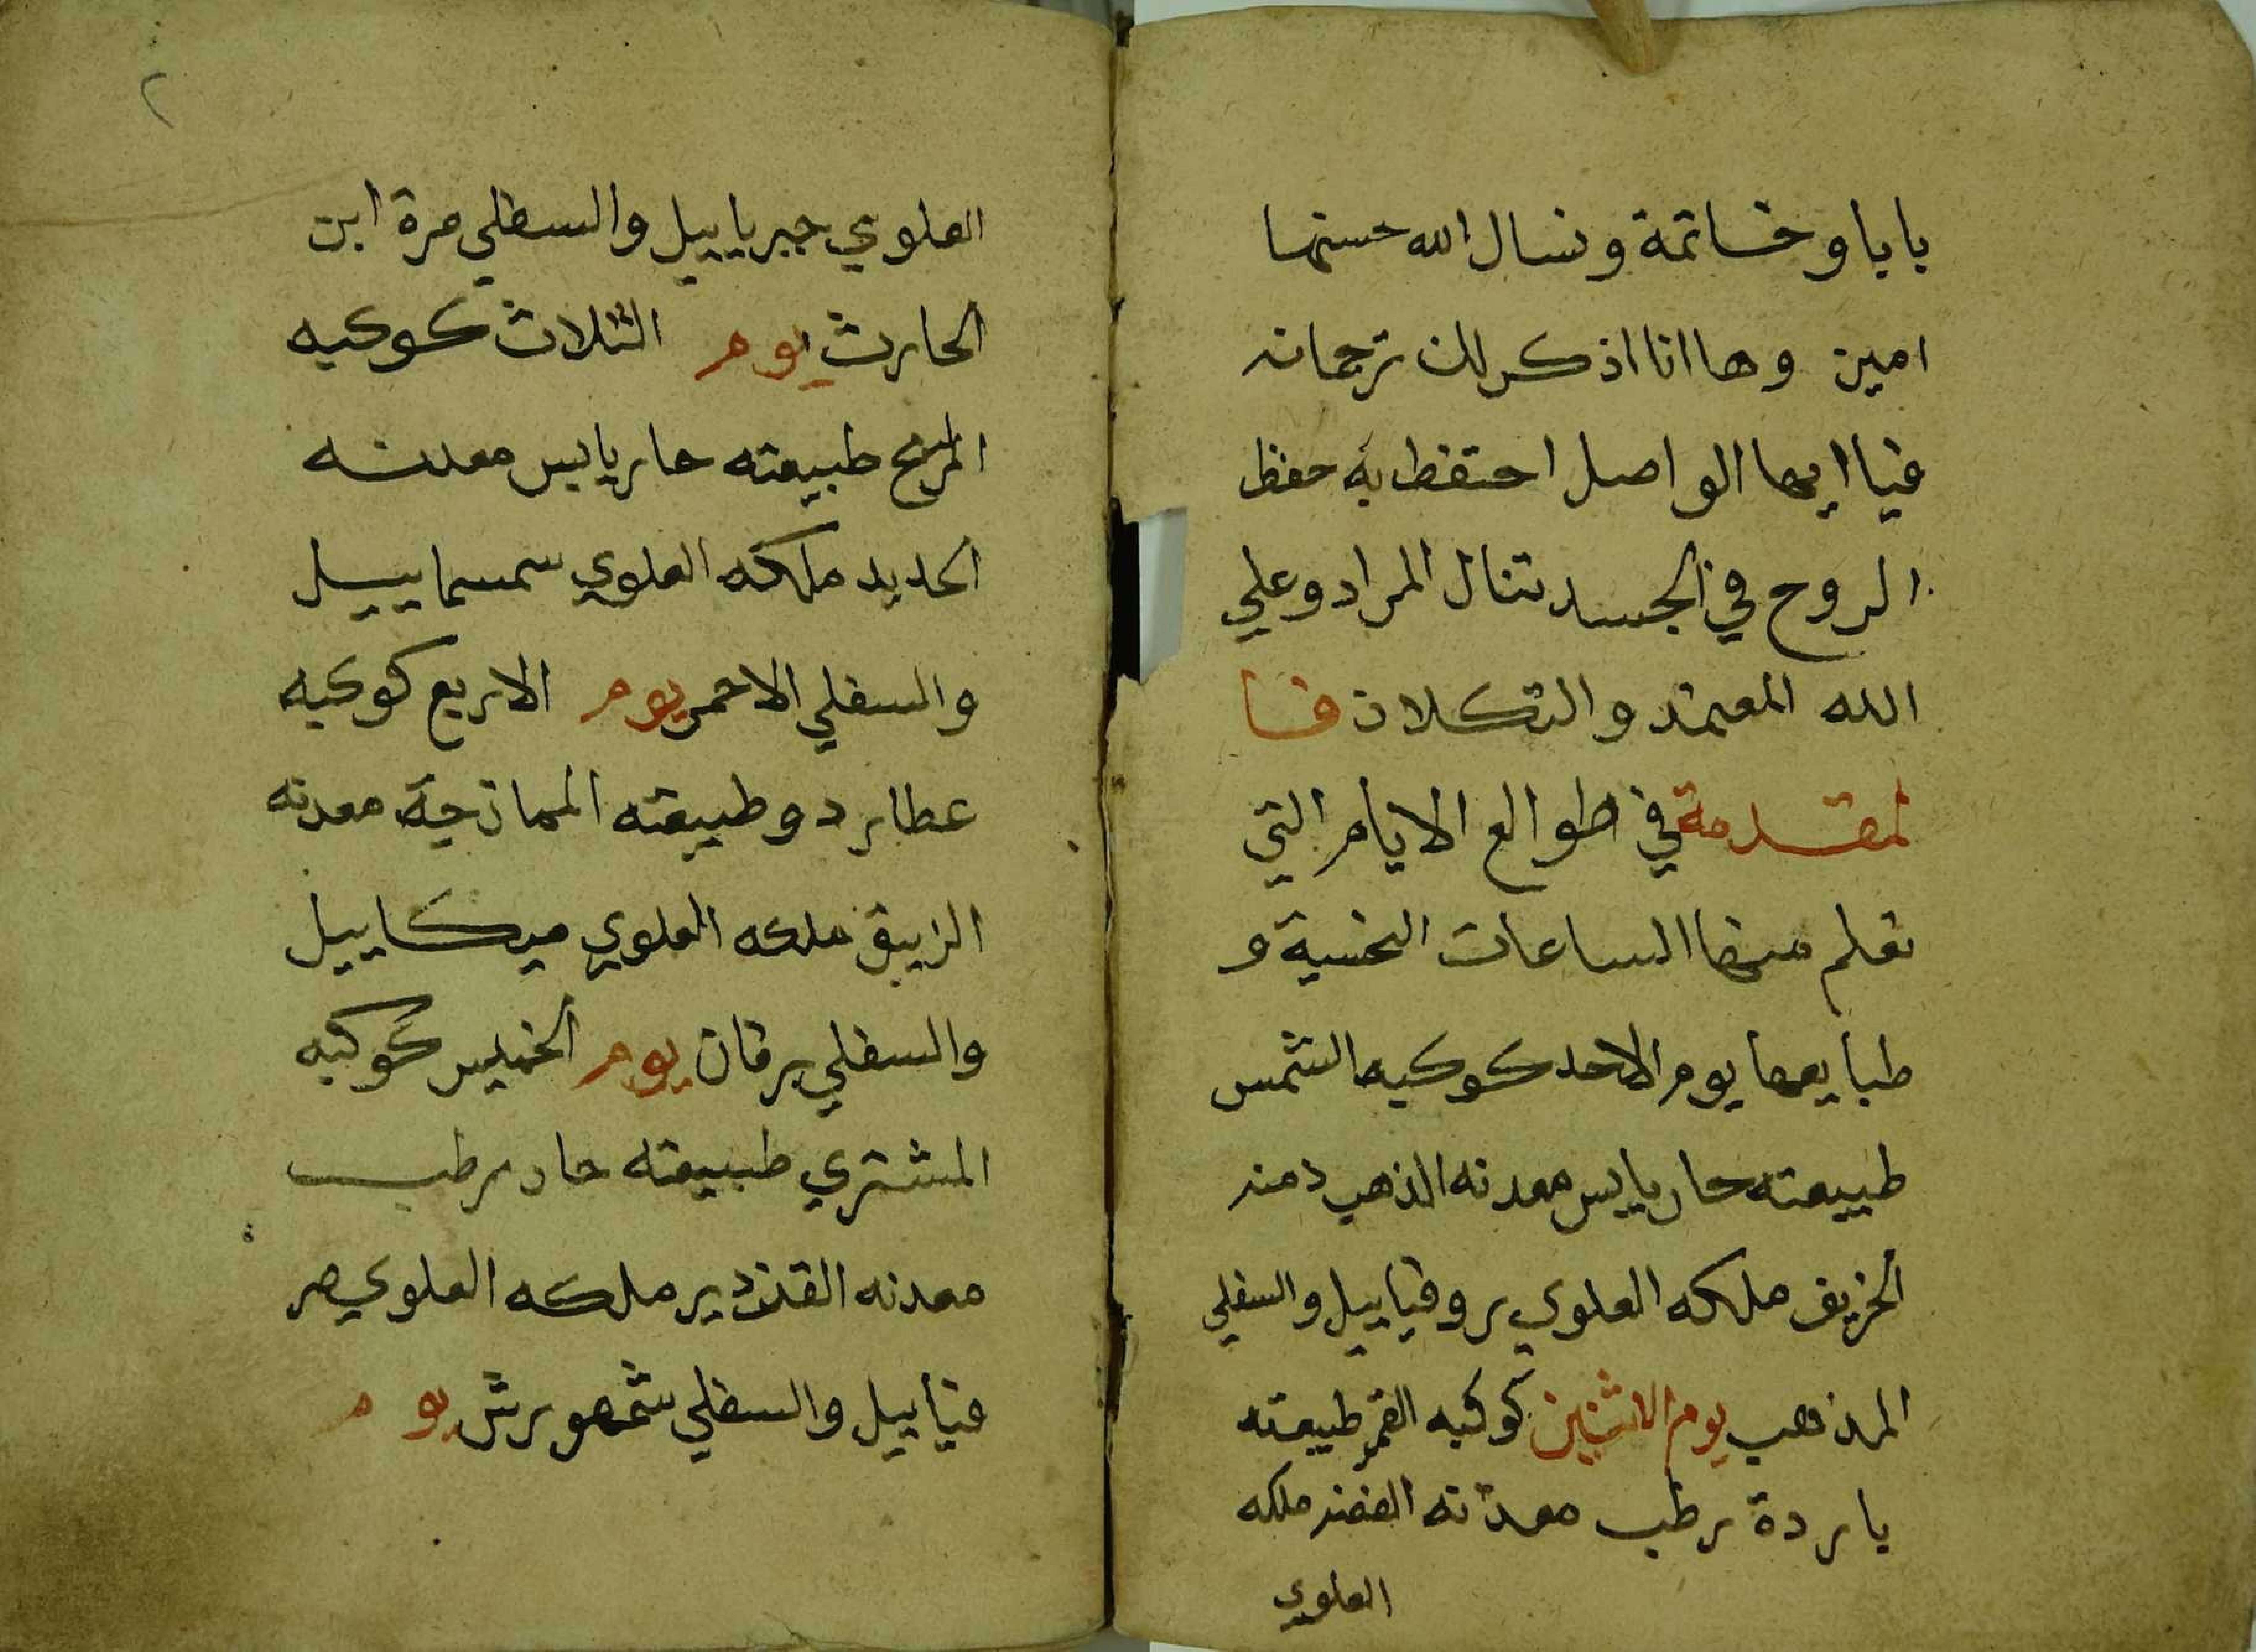 بابا وخاتمة ونسال الله حسنها
امين وها انا اذكر لك ترجمانه
فيا ايها الواصل احتفظ به حفظ
الروح في الجسد تنال المراد وعلي
الله المعتمد والتكلان فا
لمقدمة في طوالع الايام التي
تعلم منها الساعات النحسية و
طبايعها يوم الاحد كوكبه الشمس
طبيعته حار يابس معدنه الذهب زمنه
الخريف ملكه العلوي روفياييل والسفلي
المذهب يوم الاثنين كوكبه القمر طبيعته
باردة رطب معدنه الفضه ملكه
العلوي
٢
العلوي جبرياييل والسفلي مرة ابن
الحارث يوم الثلاث كوكبه
المريخ طبيعته حار يابس معدنه
الحديد ملكه العلوي سمسماييل
والسفلي الاحمر يوم الاربع كوكبه
عطارد وطبيعته الممازجة معدنه
الزيبق ملكه العلوي ميكاييل
والسفلي برقان يوم الخميس كوكبه
المشتري طبيعته حار رطب
معدنه القزدير ملكه العلوي صر
فياييل والسفلي شمهورش يوم